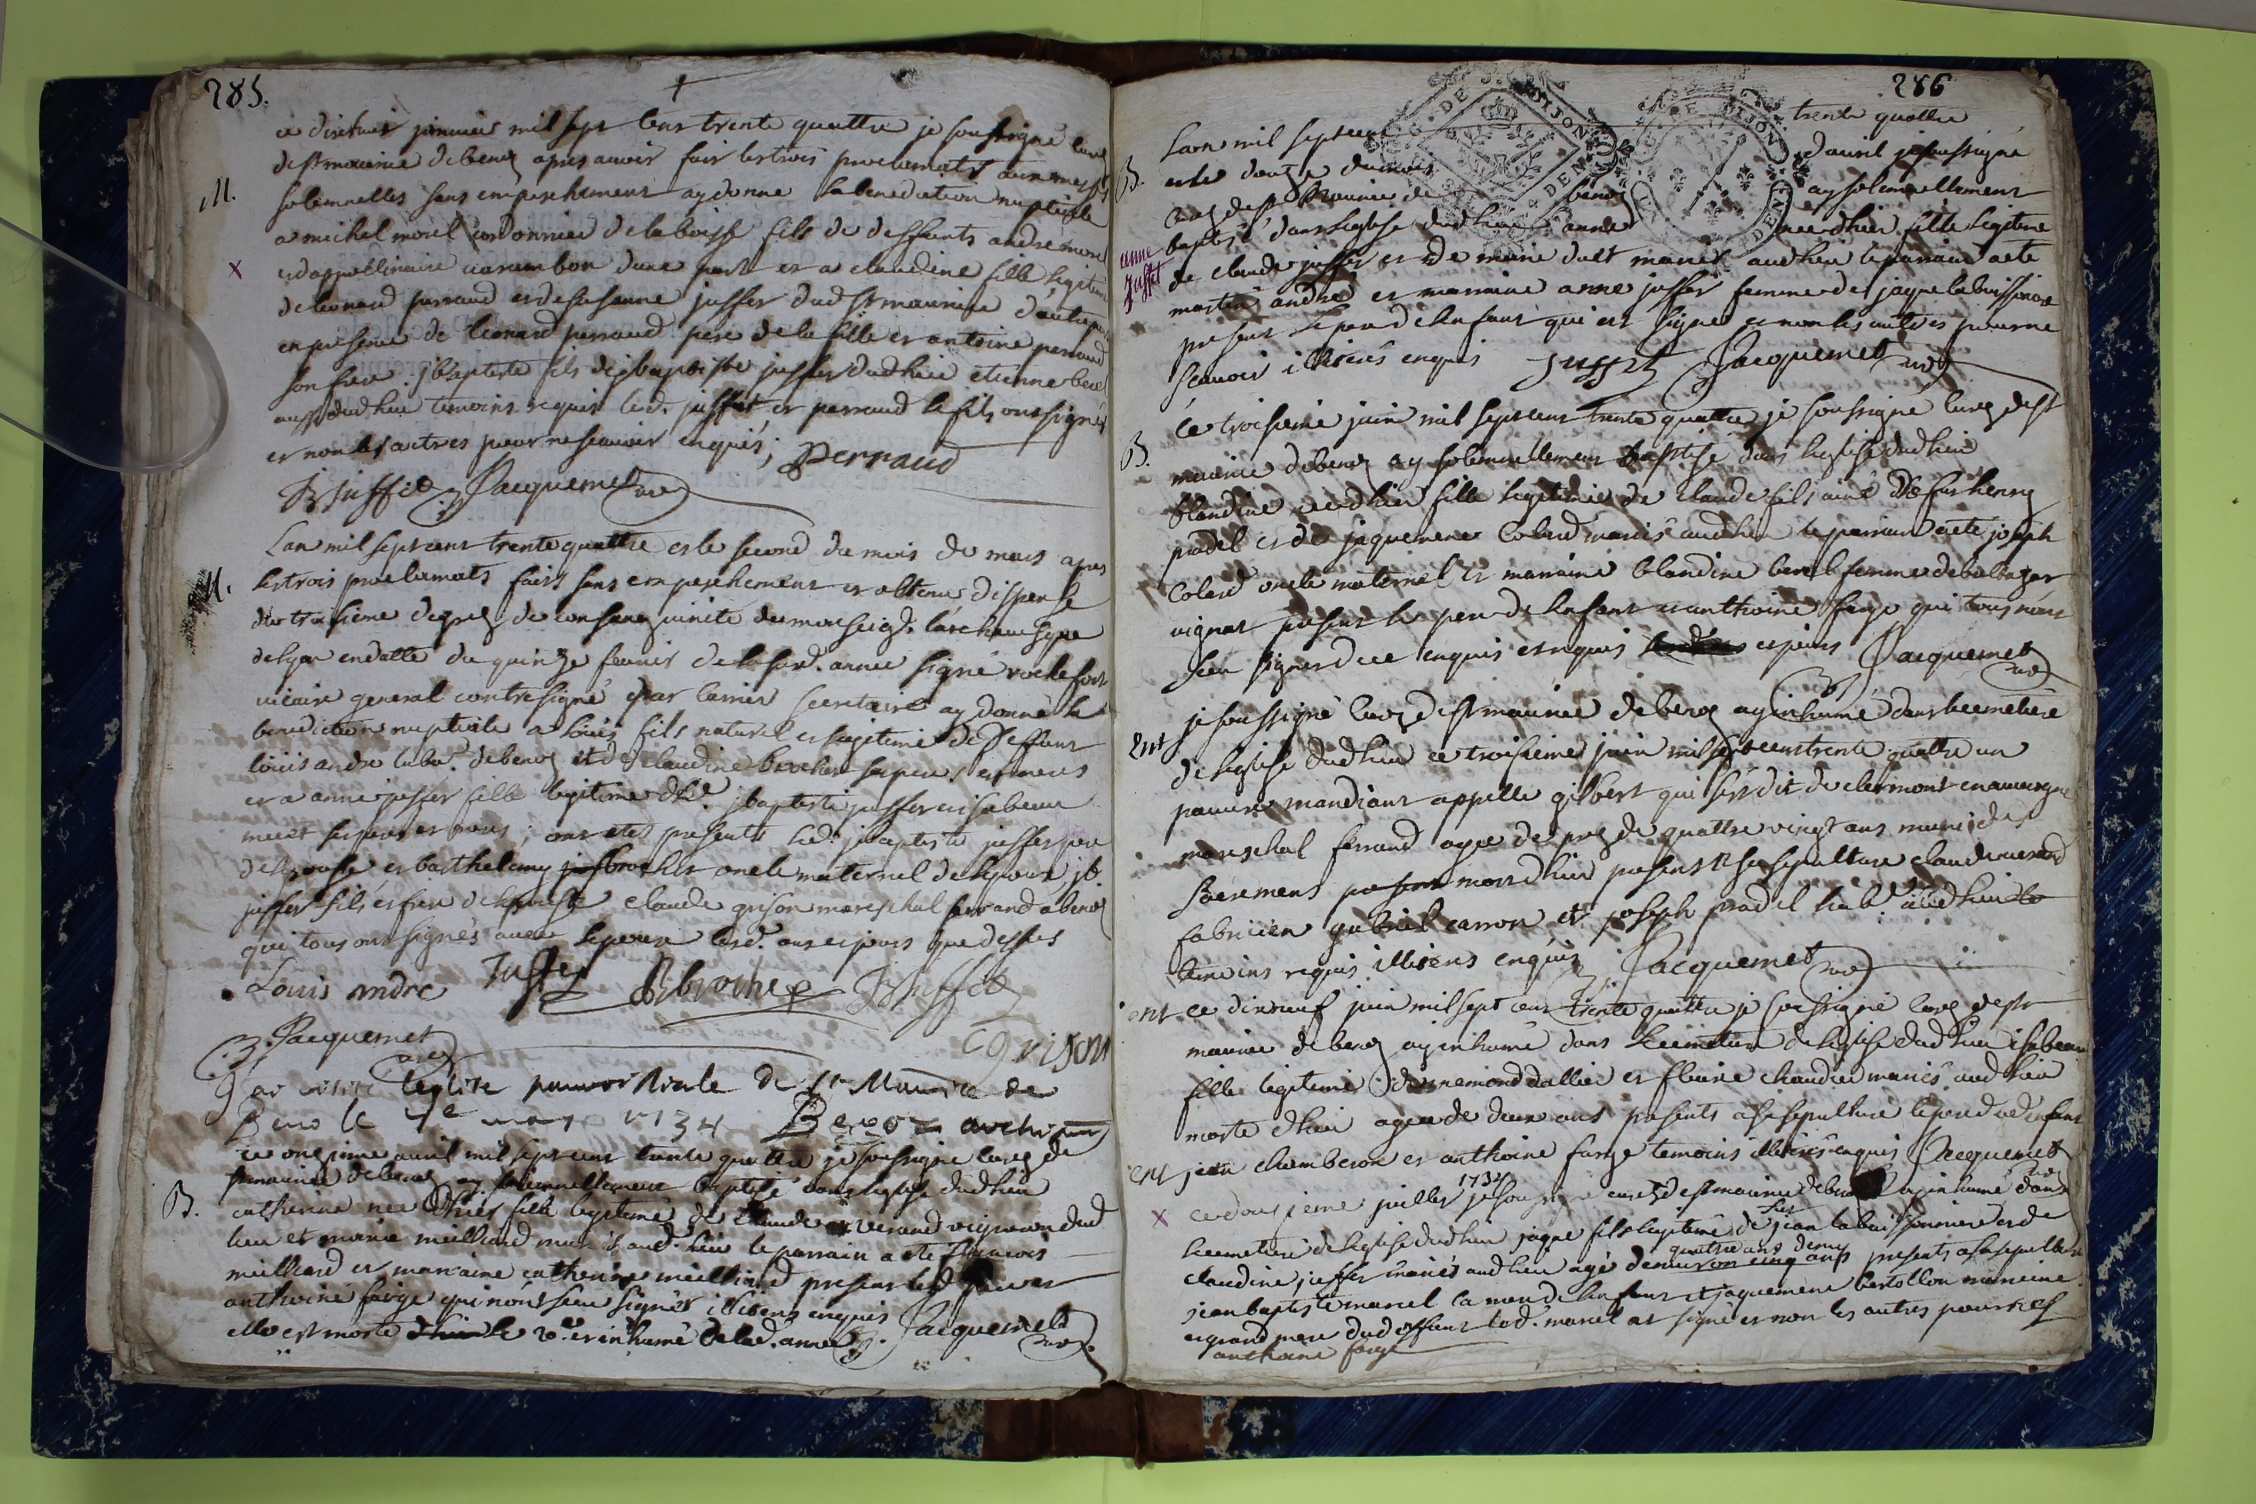 285.
ce dixhuit janvier mil sept cens trente quattre je soussigné curez
de st maurice debenoz apres avoir fait les trois proclamats aux messes
M.
solemnelles sans empeschement ay donné la benediction nuptiale
a michel morel cordonnier de la boisse fils de deffunts andre morel
x
et d'appollinaire carambon d'une part et a claudine fille legitime
de leonard perraud et de susanne juffet dud st maurice d'autre part
en presence de leonard perraud pere de la fille et antoine perraud
son frere jbaptiste fils de jbaptiste juffet dud lieu etienne
aussy dud lieu temoins requis led. juffet et perraud le fils ont signés
et non les autres pour ne scavoir enquis; Perraud
JB Juffet Jacquemet curé
L'an mil sept cent trente quattre et le second du mois de mars apres
M.
les trois proclamats faits sans empeschement et obtenu dispense
du troisieme degrez de consanguinité de monseigr. l'archevesque
de lyon en datte du quinze fevrier de la sud. année signé rochefort
vicaire general contresigné par secretaire ay donné la
benediction nuptiale a louis fils naturel et legitime de deffunt
louis andre labr. debenoz et de claudine brochet ses pere et mere
et a anne juffet fille legitime de jbaptiste juffet et isabeau
ses pere et mere; ont etes presents led. jbaptiste juffet pere
de l'epouse et barthelemy brochet oncle maternel de l'epoux jb
juffet fils et frere de l'epouse claude grison mareschal ferrand a benoz
qui tous ont signés avec l'epoux lesd. ans et jours que dessus
Louis andre Juffet Bbrochet JBJuffet
Jacquemet curé CGrison
J'ai visité l'eglise parroissiale de St Maurice de
Beno le 7e may 1734 archip
ce onzieme avril mil sept cent trente quattre je soussigné curez de
st maurice debenoz ay solemnellement baptisé dans l'eglise dud lieu
B.
catherine née d'hier fille legitime de claude verand vigneron dud
lieu et marie meilliard mariés aud. lieu le parrain a eté francois
meilliard et marraine catherine meilliard presens led pere et
anthoine farge qui n'ont sceu signer illiterés enquis
elle est morte le 20e et inhumé de lad. année. Jacquemet curé
286
L'an mil sept cent trente quattre
B.
et le douze du mois d'avril je soussigné
curez de st Maurice de benoz ay solemnellement
baptisé dans l'eglise dud lieu anne née d'hier fille legitime
anne
Juffet
de claude juffet et de marie mariés aud lieu le parrain a eté
martin andré et marraine anne juffet femme de jaque labuissonniere
present le pere de l'enfant qui est signé et non les autres pour ne
scavoir illiterés enquis Juffet Jacquemet curé
ce troisieme juin mil sept cent trente quattre je soussigné curez de st
B.
maurice debenoz ay solemnellement baptisé dans l'eglise dud lieu
blandine née d'hier fille legitime de claude fils ainé de feu henry
pradel et de jaquemene colard mariés aud lieu le parrain a eté joseph
colard oncle maternel et marraine blandine femme de baltazar
vignat present le pere de l'enfant et anthoine farge qui tous n'ont
sceu signer de ce enquis et requis et jours Jacquemet curé
je soussigné curez de st maurice debenoz ay inhumé dans le cemetiere
ent
de l'eglise dud lieu ce troisieme juin mil sept cens trente quattre un
pauvre mandiant appellé gilbert qui s'est dit de clermont en auvergne
mareschal ferrand agé de prez de quattre vingt ans muni des
sacremens mort d'hier presens a sa sepulture claude verand
fabricien gabriel carron et joseph pradel aud lieu
temoins requis illiterés enquis Jacquemet curé
ent
ce dixneuf juin mil sept cent trente quattre je soussigné curez de st
maurice debenoz ay inhumé dans le cemetiere de l'eglise dud lieu isabeau
fille legitime d'ennemond dallier et fleurie chaudier mariés aud lieu
morte d'hier agée de deux ans presents a sa sepulture le pere de l'enfant
jean chamberon et anthoine farge temoins illiterés enquis Jacquemet curé
ent
x
ce douzieme juillet 1734 je soussigné curez de st maurice debenoz ay inhumé dans
le cemetiere de l'eglise dud lieu jaque fils legitime de feu jean labuissonniere et de
claudine juffet mariés aud lieu agé d'environ cinq ans quattre ans demy presents a sa sepulture
jean baptiste marcel la mere de l'enfant et jaquemene bertollon marraine
et grand mere dud deffunt led. marcel at signé et non les autres pour
anthoine farge